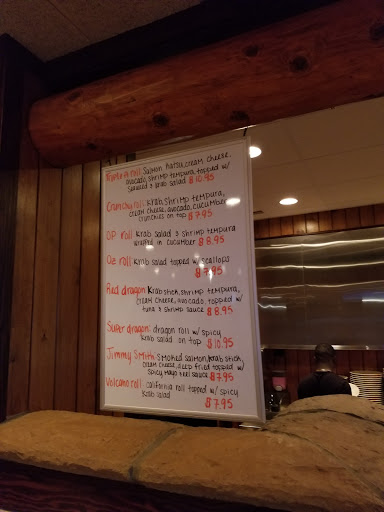 roll: Salmon, cream cheese,
avocado, shrimp tempura, topped w/
seaweed & krab salad $10.95
Crunchy roll: Krab, shrimp tempura,
cream cheese, avocado, cucumber
crunchies on top $7.95
OP roll: Krab salad & shrimp tempura
wrapped in cucumber $8.95
Oz roll: Krab salad topped w/ scallops
$7.95
Red dragon: Krab stick, shrimp tempura,
cream cheese, avocado, topped w/
tuna & shrimp sauce $8.95
Super dragon: dragon roll w/ spicy
krab salad on top $10.95
Jimmy Smith: Smoked salmon, krab stick,
cream cheese, deep fried topped w/
spicy mayo & eel sauce $7.95
Volcano roll: california roll topped w/ spicy
krab salad
$7.95